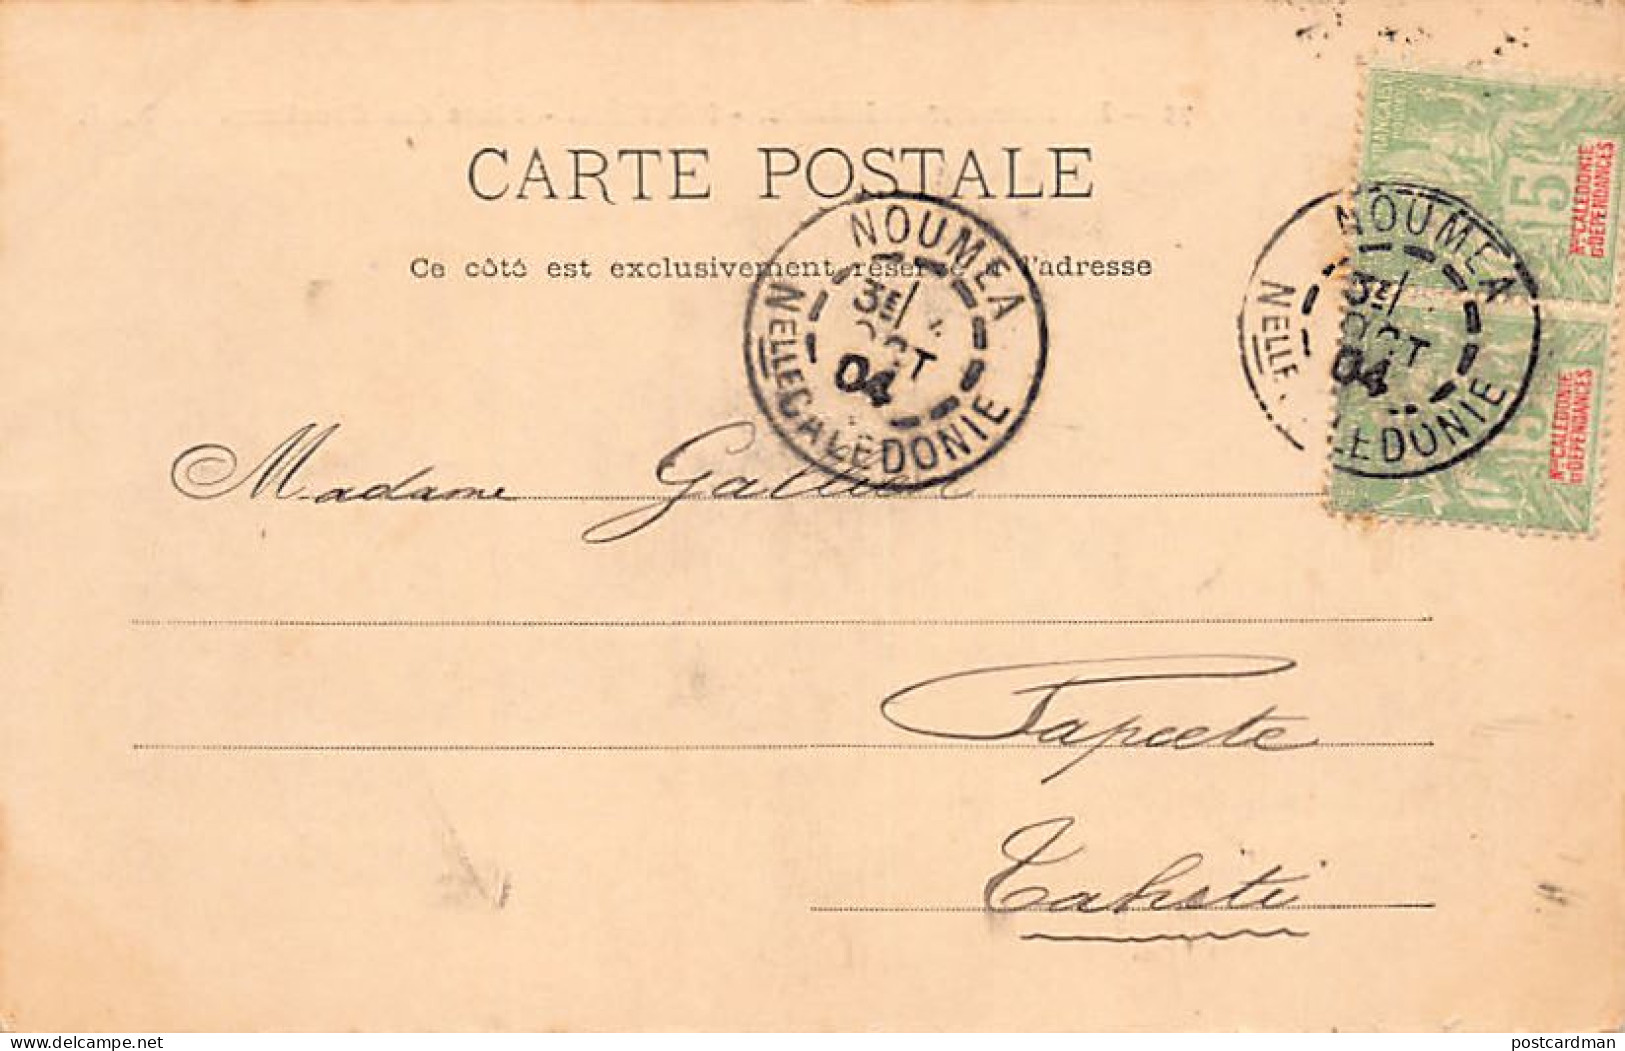 CARTE POSTALE
Ce côté est exclusivement réservé à l'adresse
NOUMEA
3E/
OCT
04
NELLE CALEDONIE
NOUMEA
3E/
OCT
04
NELLE CALEDONIE
5
NLLE CALÉDONIE
ET DÉPENDANCES
5
NLLE CALÉDONIE
ET DÉPENDANCES
Madame Gallien
Papeete
Tahiti
postcardman